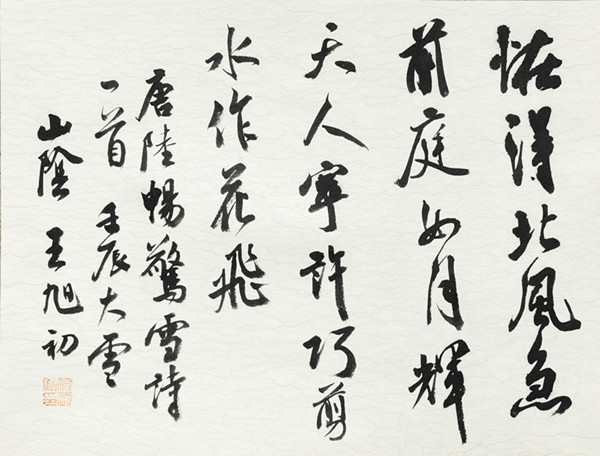 怪得北風急
前庭如月輝
天人寧許巧剪
水作花飛
唐陸暢驚雪詩
一首 壬辰大雪
山陰 王旭初